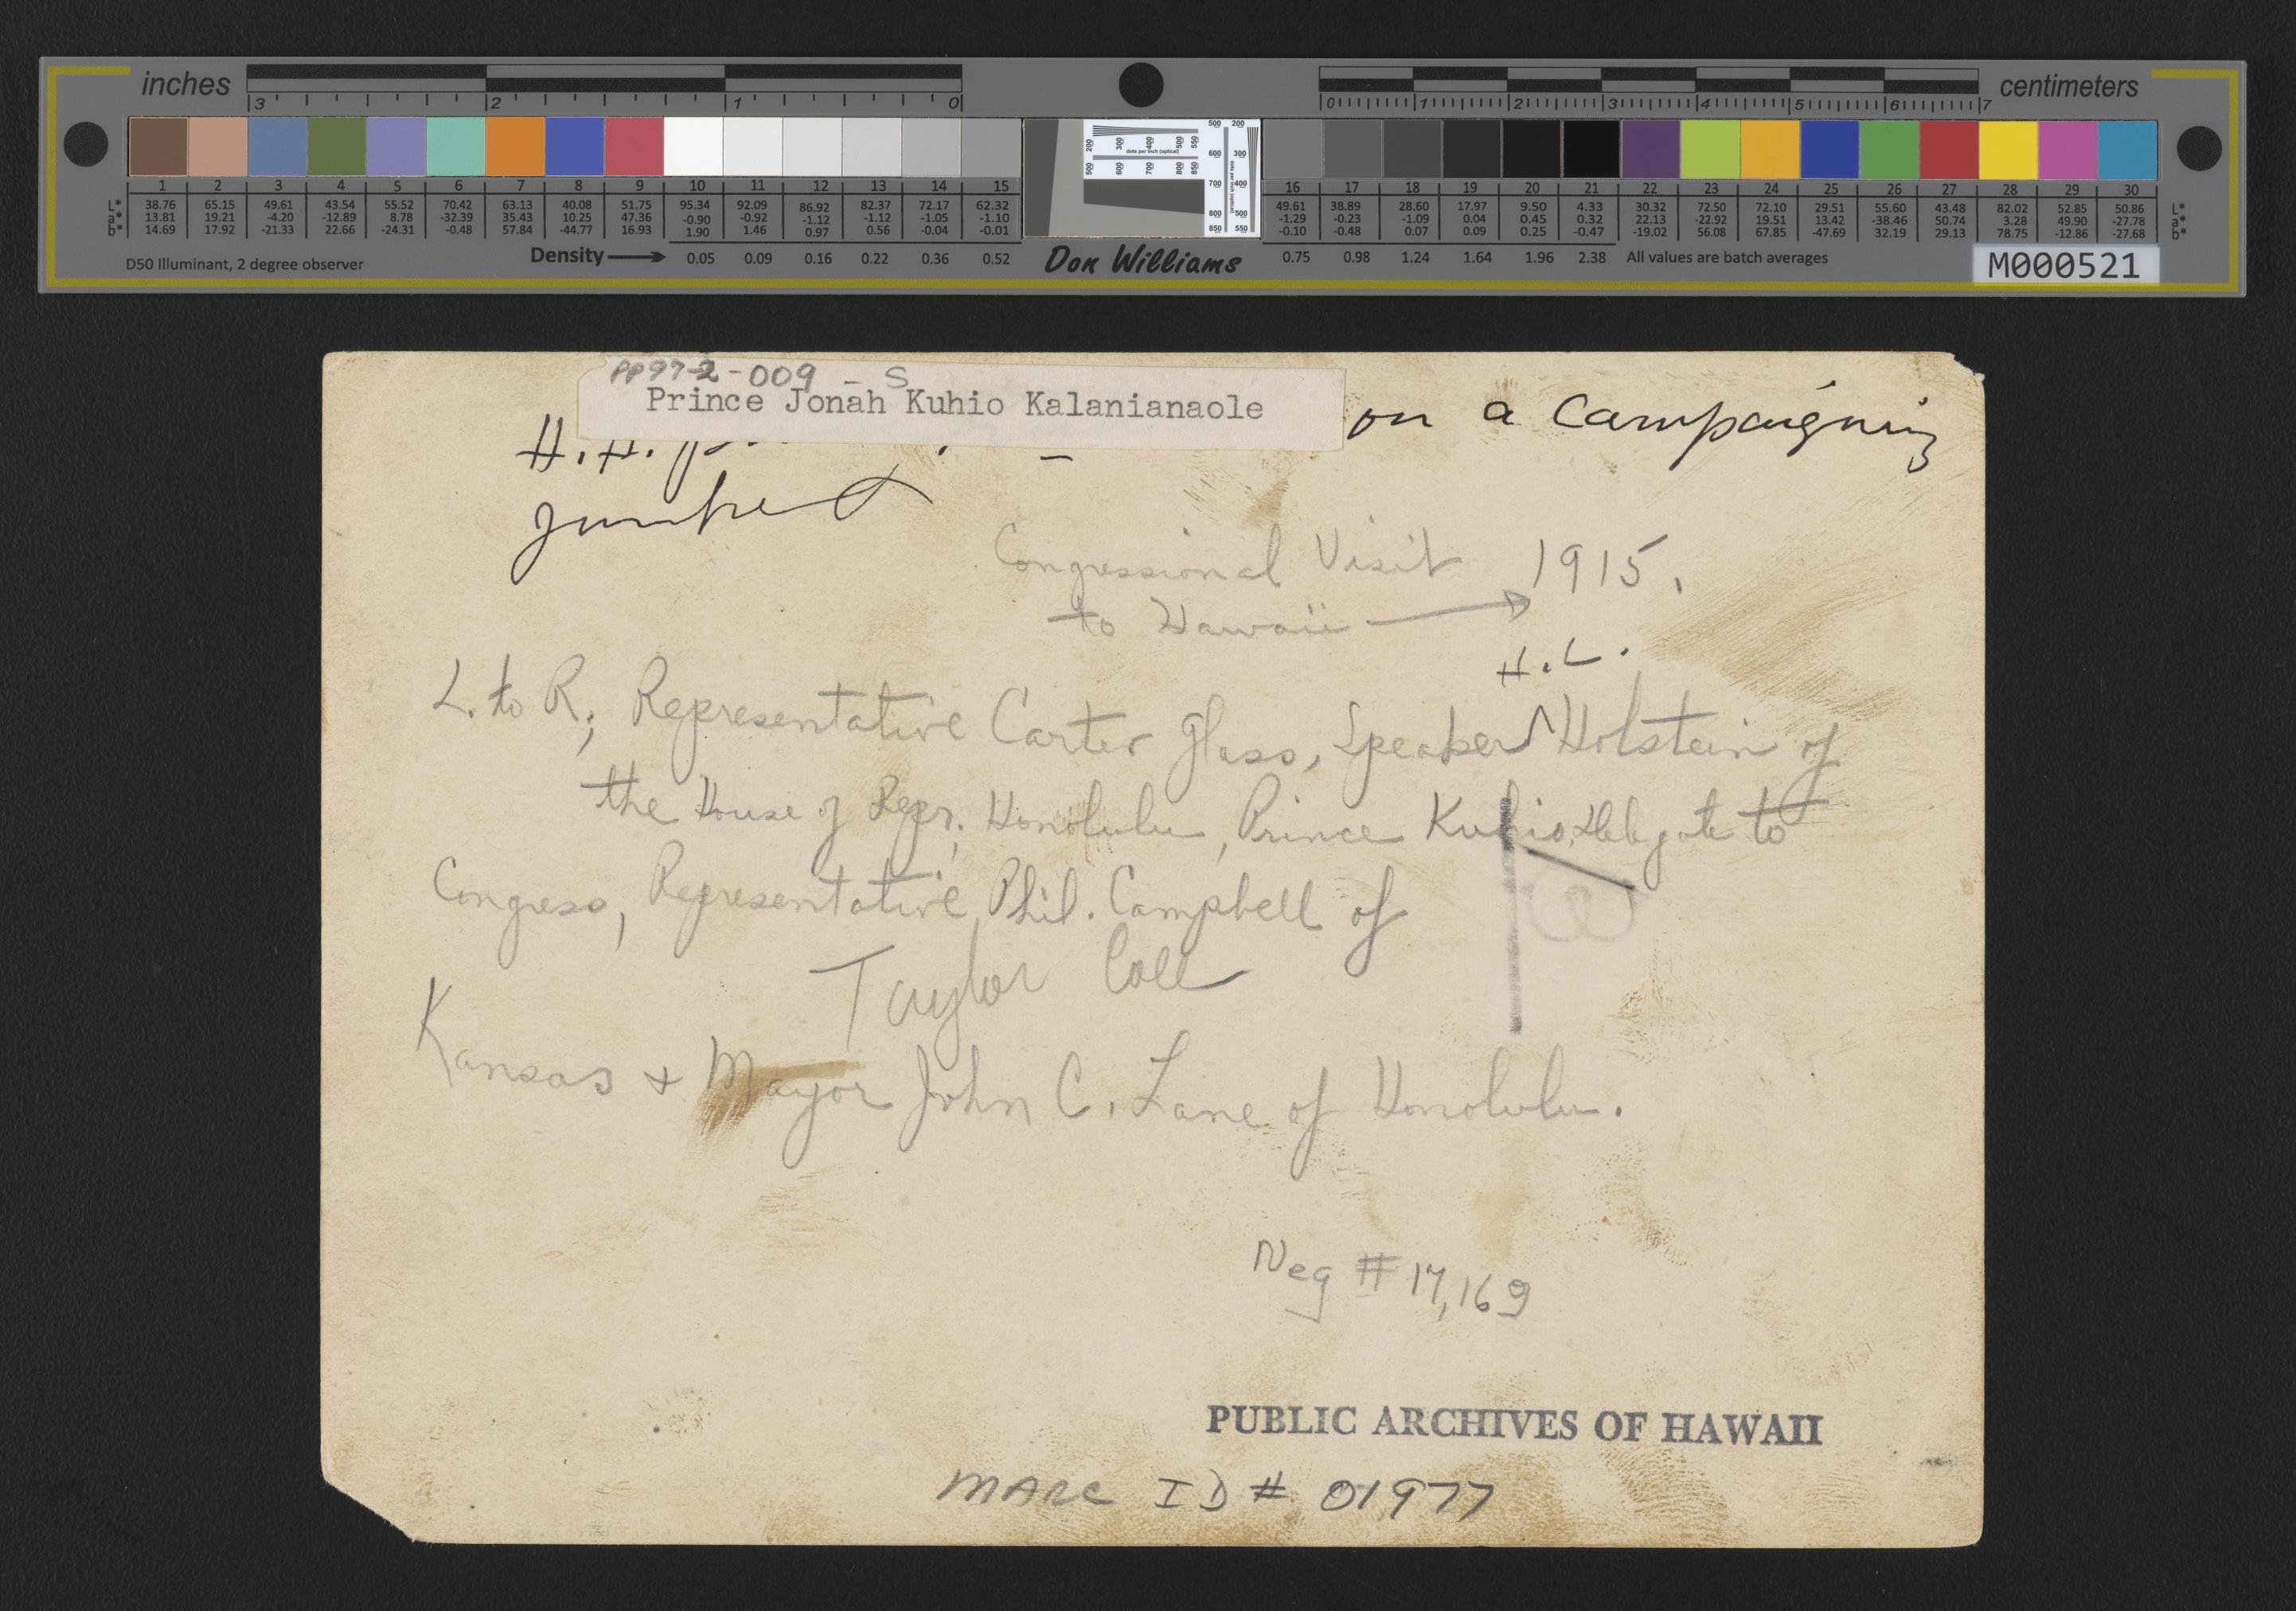 inches
3 2 1 0
0 1 2 3 4 5 6 7
centimeters
1 2 3 4 5 6 7 8 9 10 11 12 13 14 15
L* 38.76 65.15 49.61 43.54 55.52 70.42 63.13 40.08 51.75 95.34 92.09 86.92 82.37 72.17 62.32
a* 13.81 19.21 -4.20 -12.89 8.78 -32.39 35.43 10.25 47.36 -0.90 -0.92 -1.12 -1.12 -1.05 -1.10
b* 14.69 17.92 -21.33 22.66 -24.31 -0.48 57.84 -44.77 16.93 1.90 1.46 0.97 0.56 -0.04 -0.01
D50 Illuminant, 2 degree observer
Density 0.05 0.09 0.16 0.22 0.36 0.52
Don Williams
16 17 18 19 20 21 22 23 24 25 26 27 28 29 30
49.61 38.89 28.60 17.97 9.50 4.33 30.32 72.50 72.10 29.51 55.60 43.48 82.02 52.85 50.86 L*
-1.29 -0.23 -1.09 0.04 0.45 0.32 22.13 -22.92 19.51 13.42 -38.46 50.74 3.28 49.90 -27.78 a*
-0.10 -0.48 0.07 0.09 0.25 -0.47 -19.02 56.08 67.85 -47.69 32.19 29.13 78.75 -12.86 -27.68 b*
0.75 0.98 1.24 1.64 1.96 2.38 All values are batch averages
M000521
PP97-2-009-S
Prince Jonah Kuhio Kalanianaole
H.H. on a Campaigning
Congressional Visit 1915.
to Hawaii
H.L.
L. to R; Representative Carter Glass, Speaker Holstein of
the House of Repr. Honolulu, Prince Kuhio, Delegate to
Congress, Representative Phil. Campbell of
Taylor Coll
Kansas + Mayor John C. Lane of Honolulu.
Neg # 17,169
PUBLIC ARCHIVES OF HAWAII
MARC ID # 01977